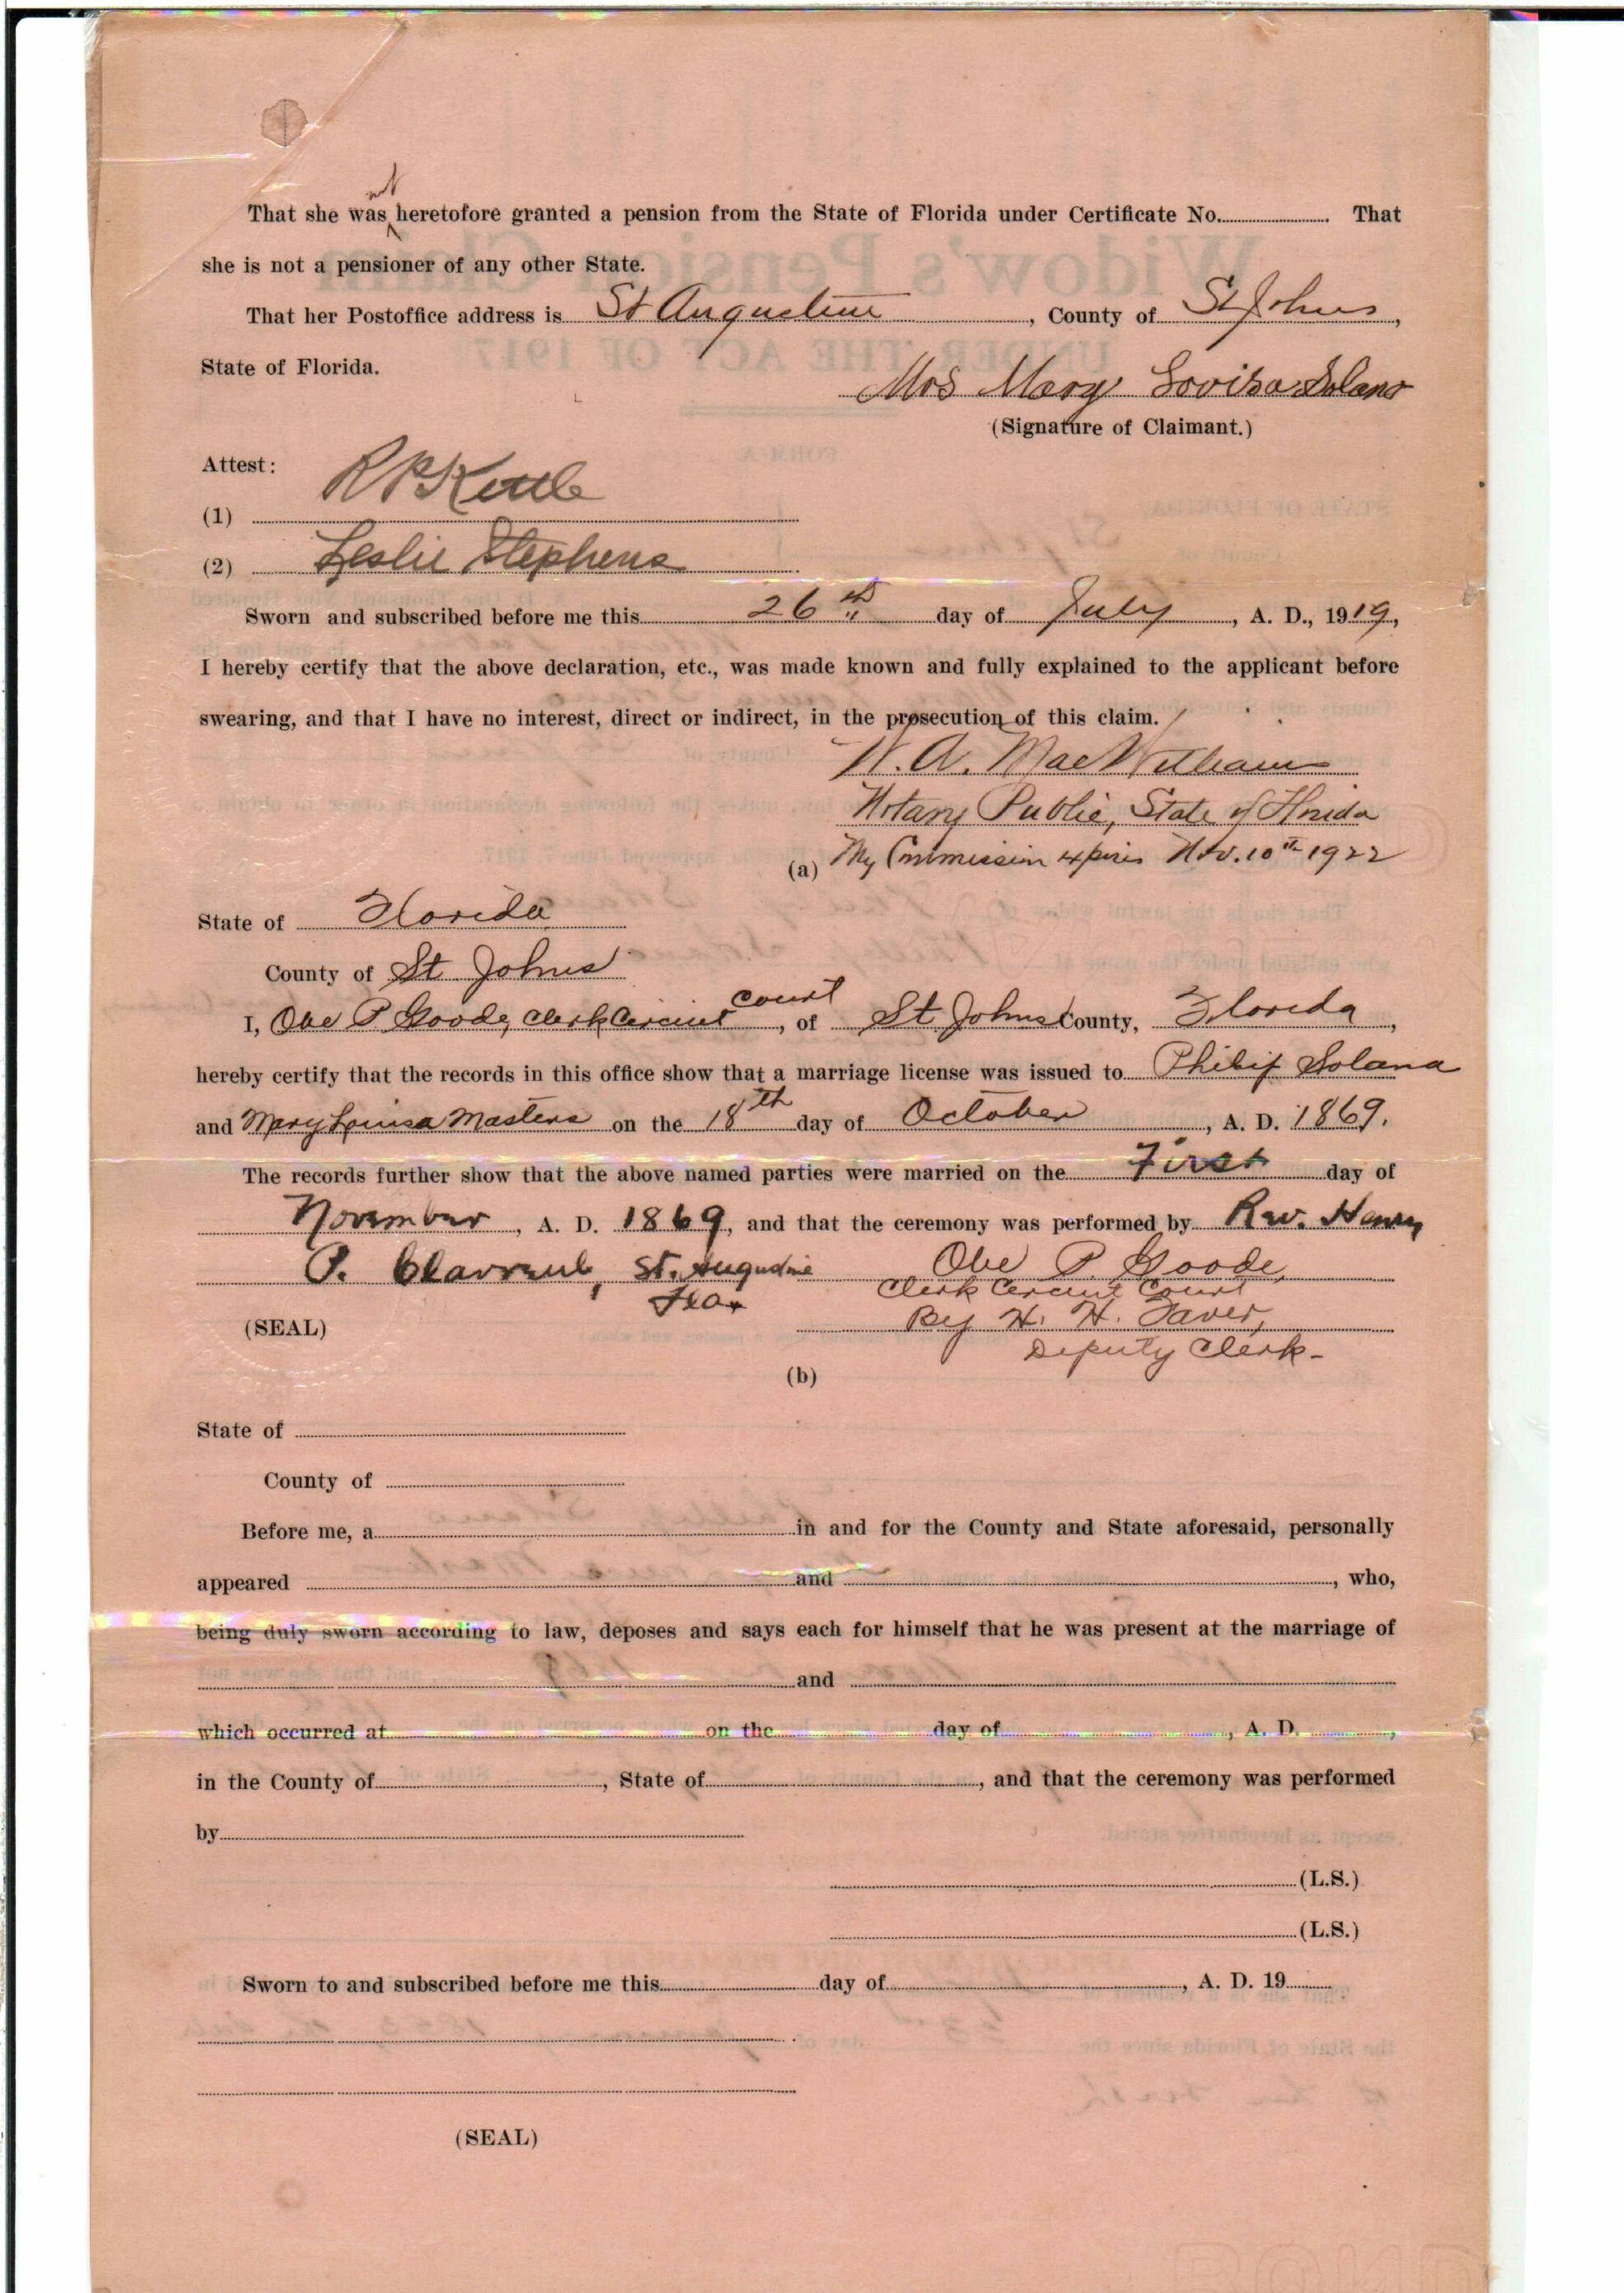 That she was not heretofore granted a pension from the State of Florida under Certificate No. That
she is not a pensioner of any other State.
That her Postoffice address is St Augustine, County of St Johns,
State of Florida.
Mrs Mary Lovisa Solano
(Signature of Claimant.)
Attest:
(1) R P Kettle
(2) Leslie Stephens
Sworn and subscribed before me this 26th day of July, A. D., 1919,
I hereby certify that the above declaration, etc., was made known and fully explained to the applicant before
swearing, and that I have no interest, direct or indirect, in the prosecution of this claim.
W. A. MacWilliams
Notary Public, State of Florida
(a) My Commission expires Nov. 10th 1922
State of Florida
County of St Johns
I, Obe P. Goode, Clerk Circuit court, of St Johns County, Florida,
hereby certify that the records in this office show that a marriage license was issued to Philip Solana
and Mary Louisa Masters on the 18th day of October, A. D. 1869.
The records further show that the above named parties were married on the First day of
November, A. D. 1869, and that the ceremony was performed by Rev. Henry
P. Clavreul, St. Augustine
Fla.
Obe P. Goode,
Clerk Circuit Court
(SEAL)
By H. H. Faver,
Deputy Clerk-
(b)
State of
County of
Before me, a in and for the County and State aforesaid, personally
appeared and , who,
being duly sworn according to law, deposes and says each for himself that he was present at the marriage of
and
which occurred at on the day of , A. D. ,
in the County of , State of , and that the ceremony was performed
by
(L.S.)
(L.S.)
Sworn to and subscribed before me this day of , A. D. 19
(SEAL)